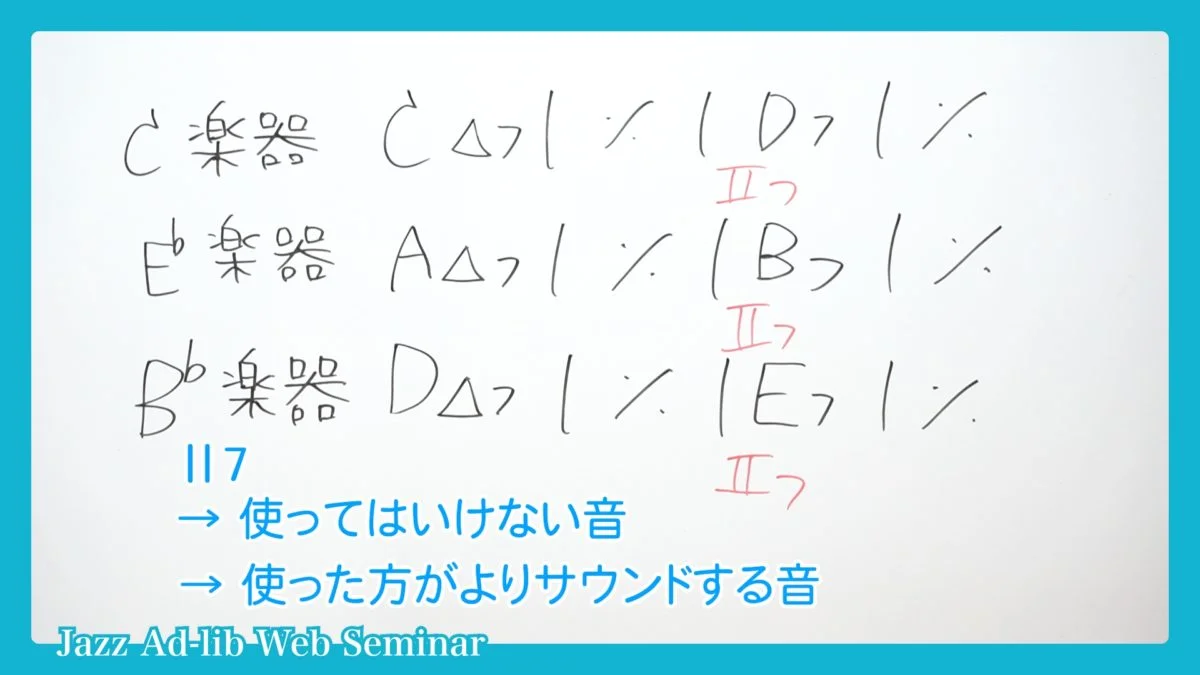 C楽器 C△7 | ％ | D7 | ％
II7
E♭楽器 A△7 | ％ | B7 | ％
II7
B♭楽器 D△7 | ％ | E7 | ％
II7
II7
→ 使ってはいけない音
→ 使った方がよりサウンドする音
Jazz Ad-lib Web Seminar